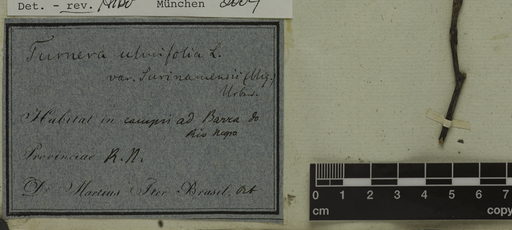 Det. - rev. München
Turnera ulmifolia L.
var. Surinamensis (Miq.)
Urban.
Habitat in campis ad Barra do
Rio Negro
Provinciae R. N.
Dr. Martius Iter Brasil. Oct
0 1 2 3 4 5 6 7
cm copy